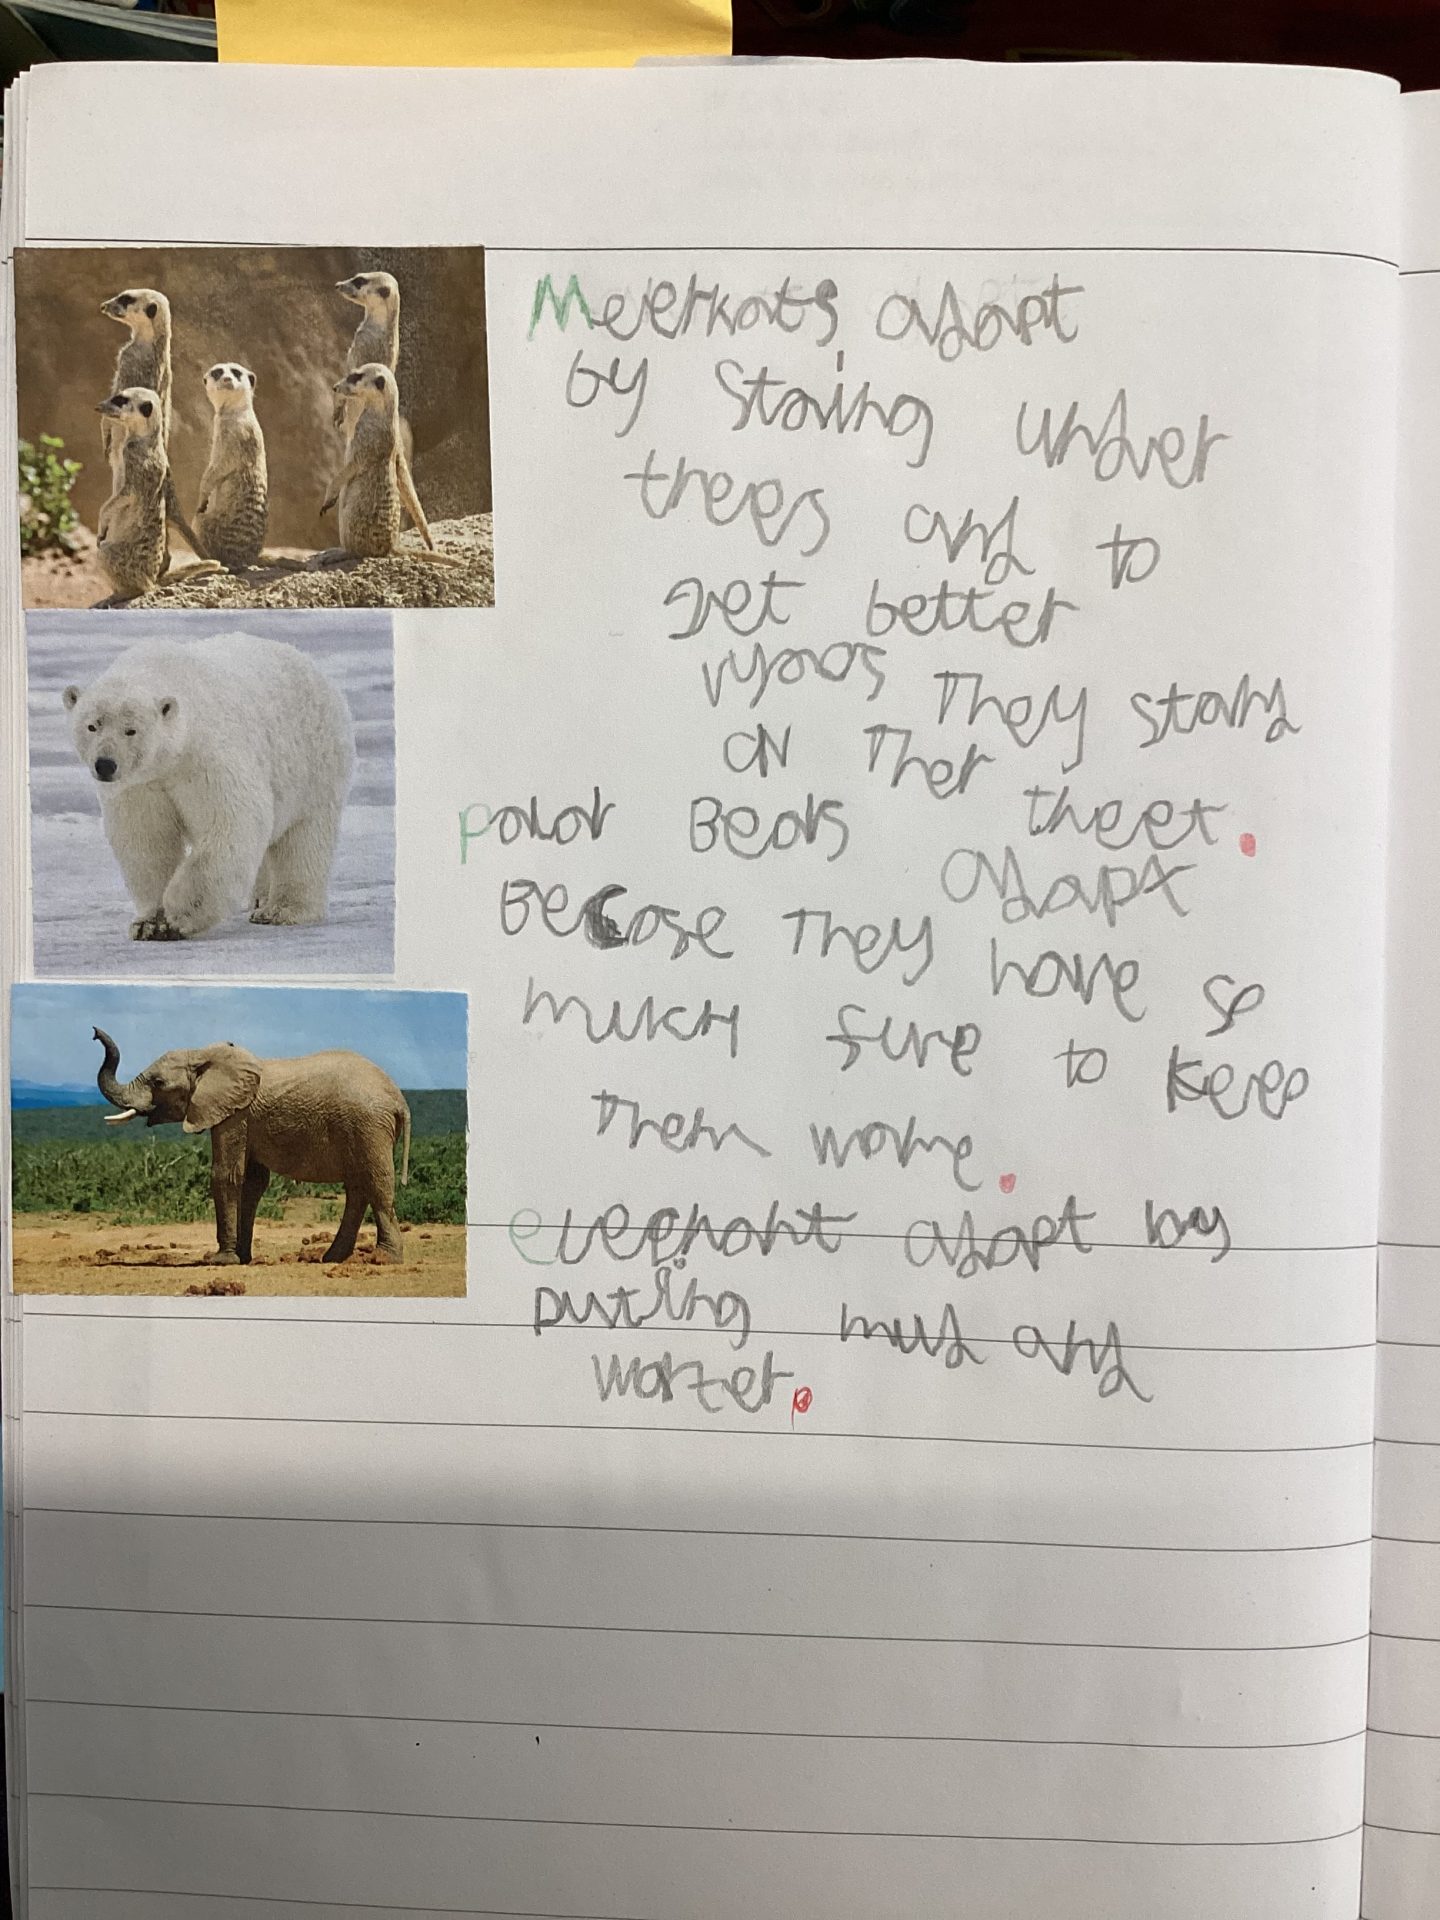 Meerkats adapt
by staing under
trees and to
get better
they stand
on Ther theet.
polor Bears adapt
Becose They have so
much fure to keep
Them worme.
elephant adapt by
puting mud and
warter.